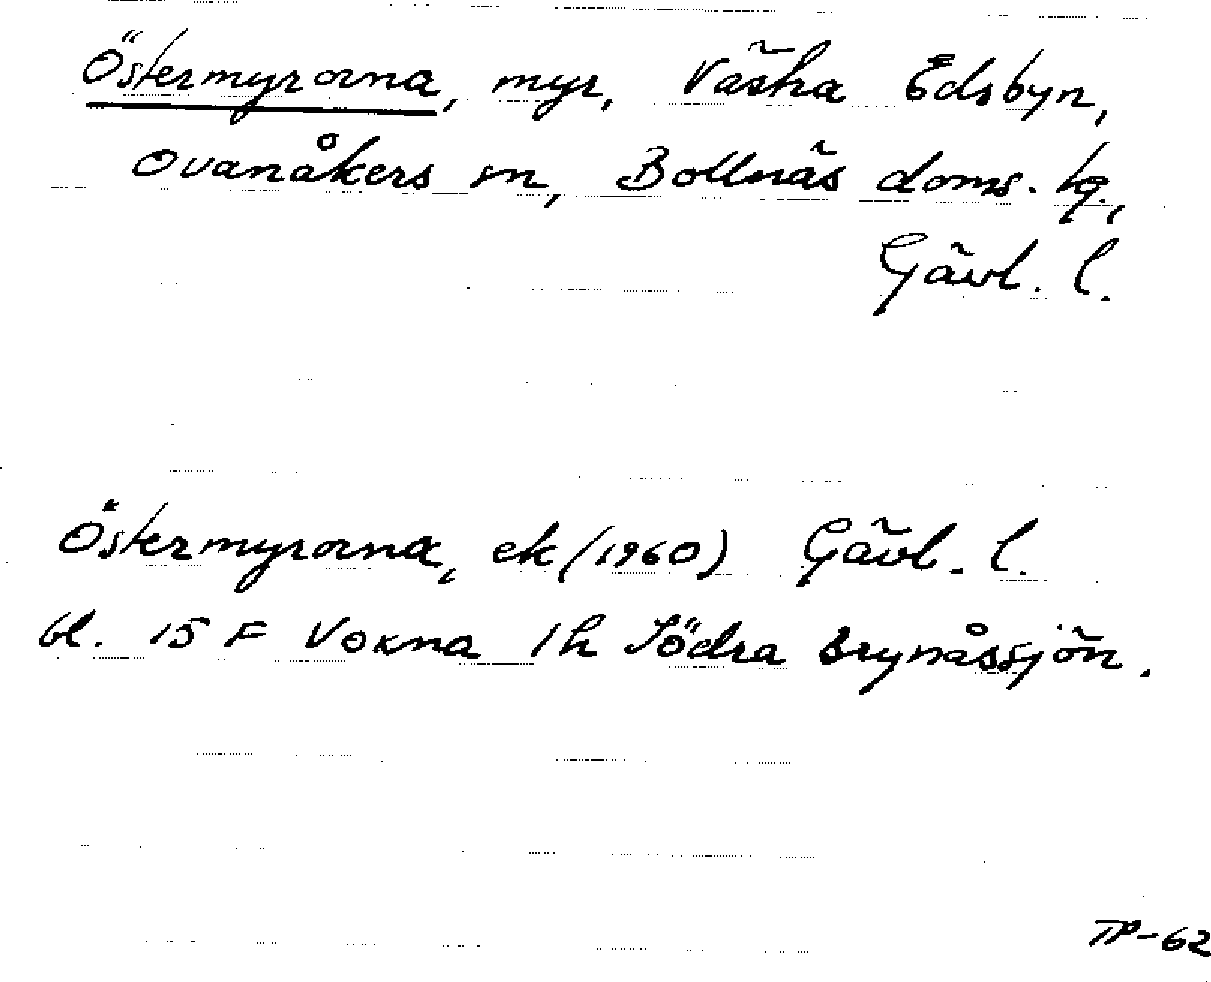 Östermyrorna, myr, Västra Edsbyn,
Ovanåkers sn, Bollnäs doms. tg.,
Gävl. l.
Östermyrorna, ek (1960) Gävl. l.
bl. 15 F Voxna 1h Södra Brynåssjön.
TP-62